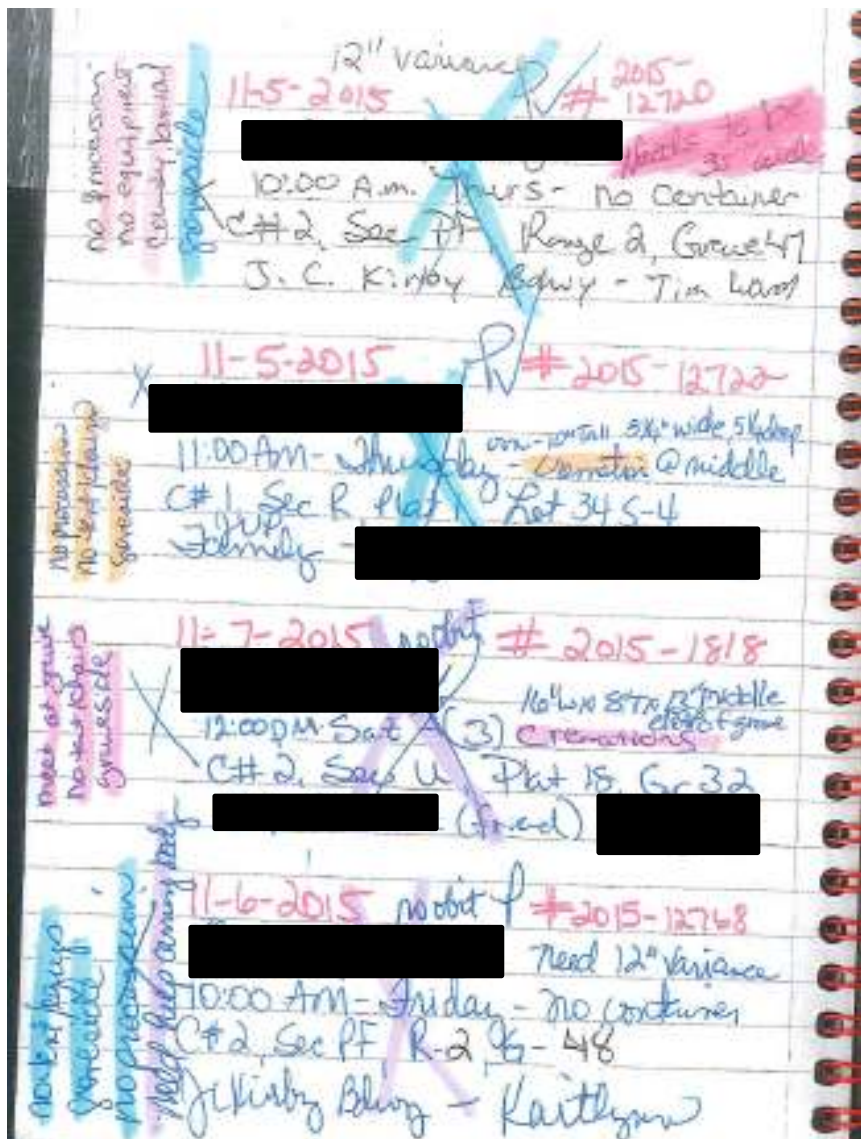 12" variance
11-5-2015 # 2015-
12720
Needs to be
35" wide
10:00 A.m. Thurs- no container
C#2, Sec PF Range 2, Grave 47
J. C. Kirby Bdwy - Tim
no procession
no equipment
county burial
graveside
11-5-2015 # 2015-12722
11:00 AM - Thursday - cremation @ middle
urn-10" tall, 5¼" wide, 5¼ deep
C#1, Sec R Plat 1 Lot 34 S-4
Family -
no procession
no tent/chairs
graveside
11-7-2015 no obit # 2015-1818
16"W x 8"T x 12" middle
12:00 PM Sat - (3) Cremations
C#2, Sec U Plat 18, Gr 32
meet at grave
no tent/chairs
graveside
11-6-2015 no obit # 2015-12768
need 12" variance
10:00 AM - Friday - no container
C#2, Sec PF, R-2, G-48
JC Kirby Bdwy - Kaitlynn
graveside
no procession
need help carrying body